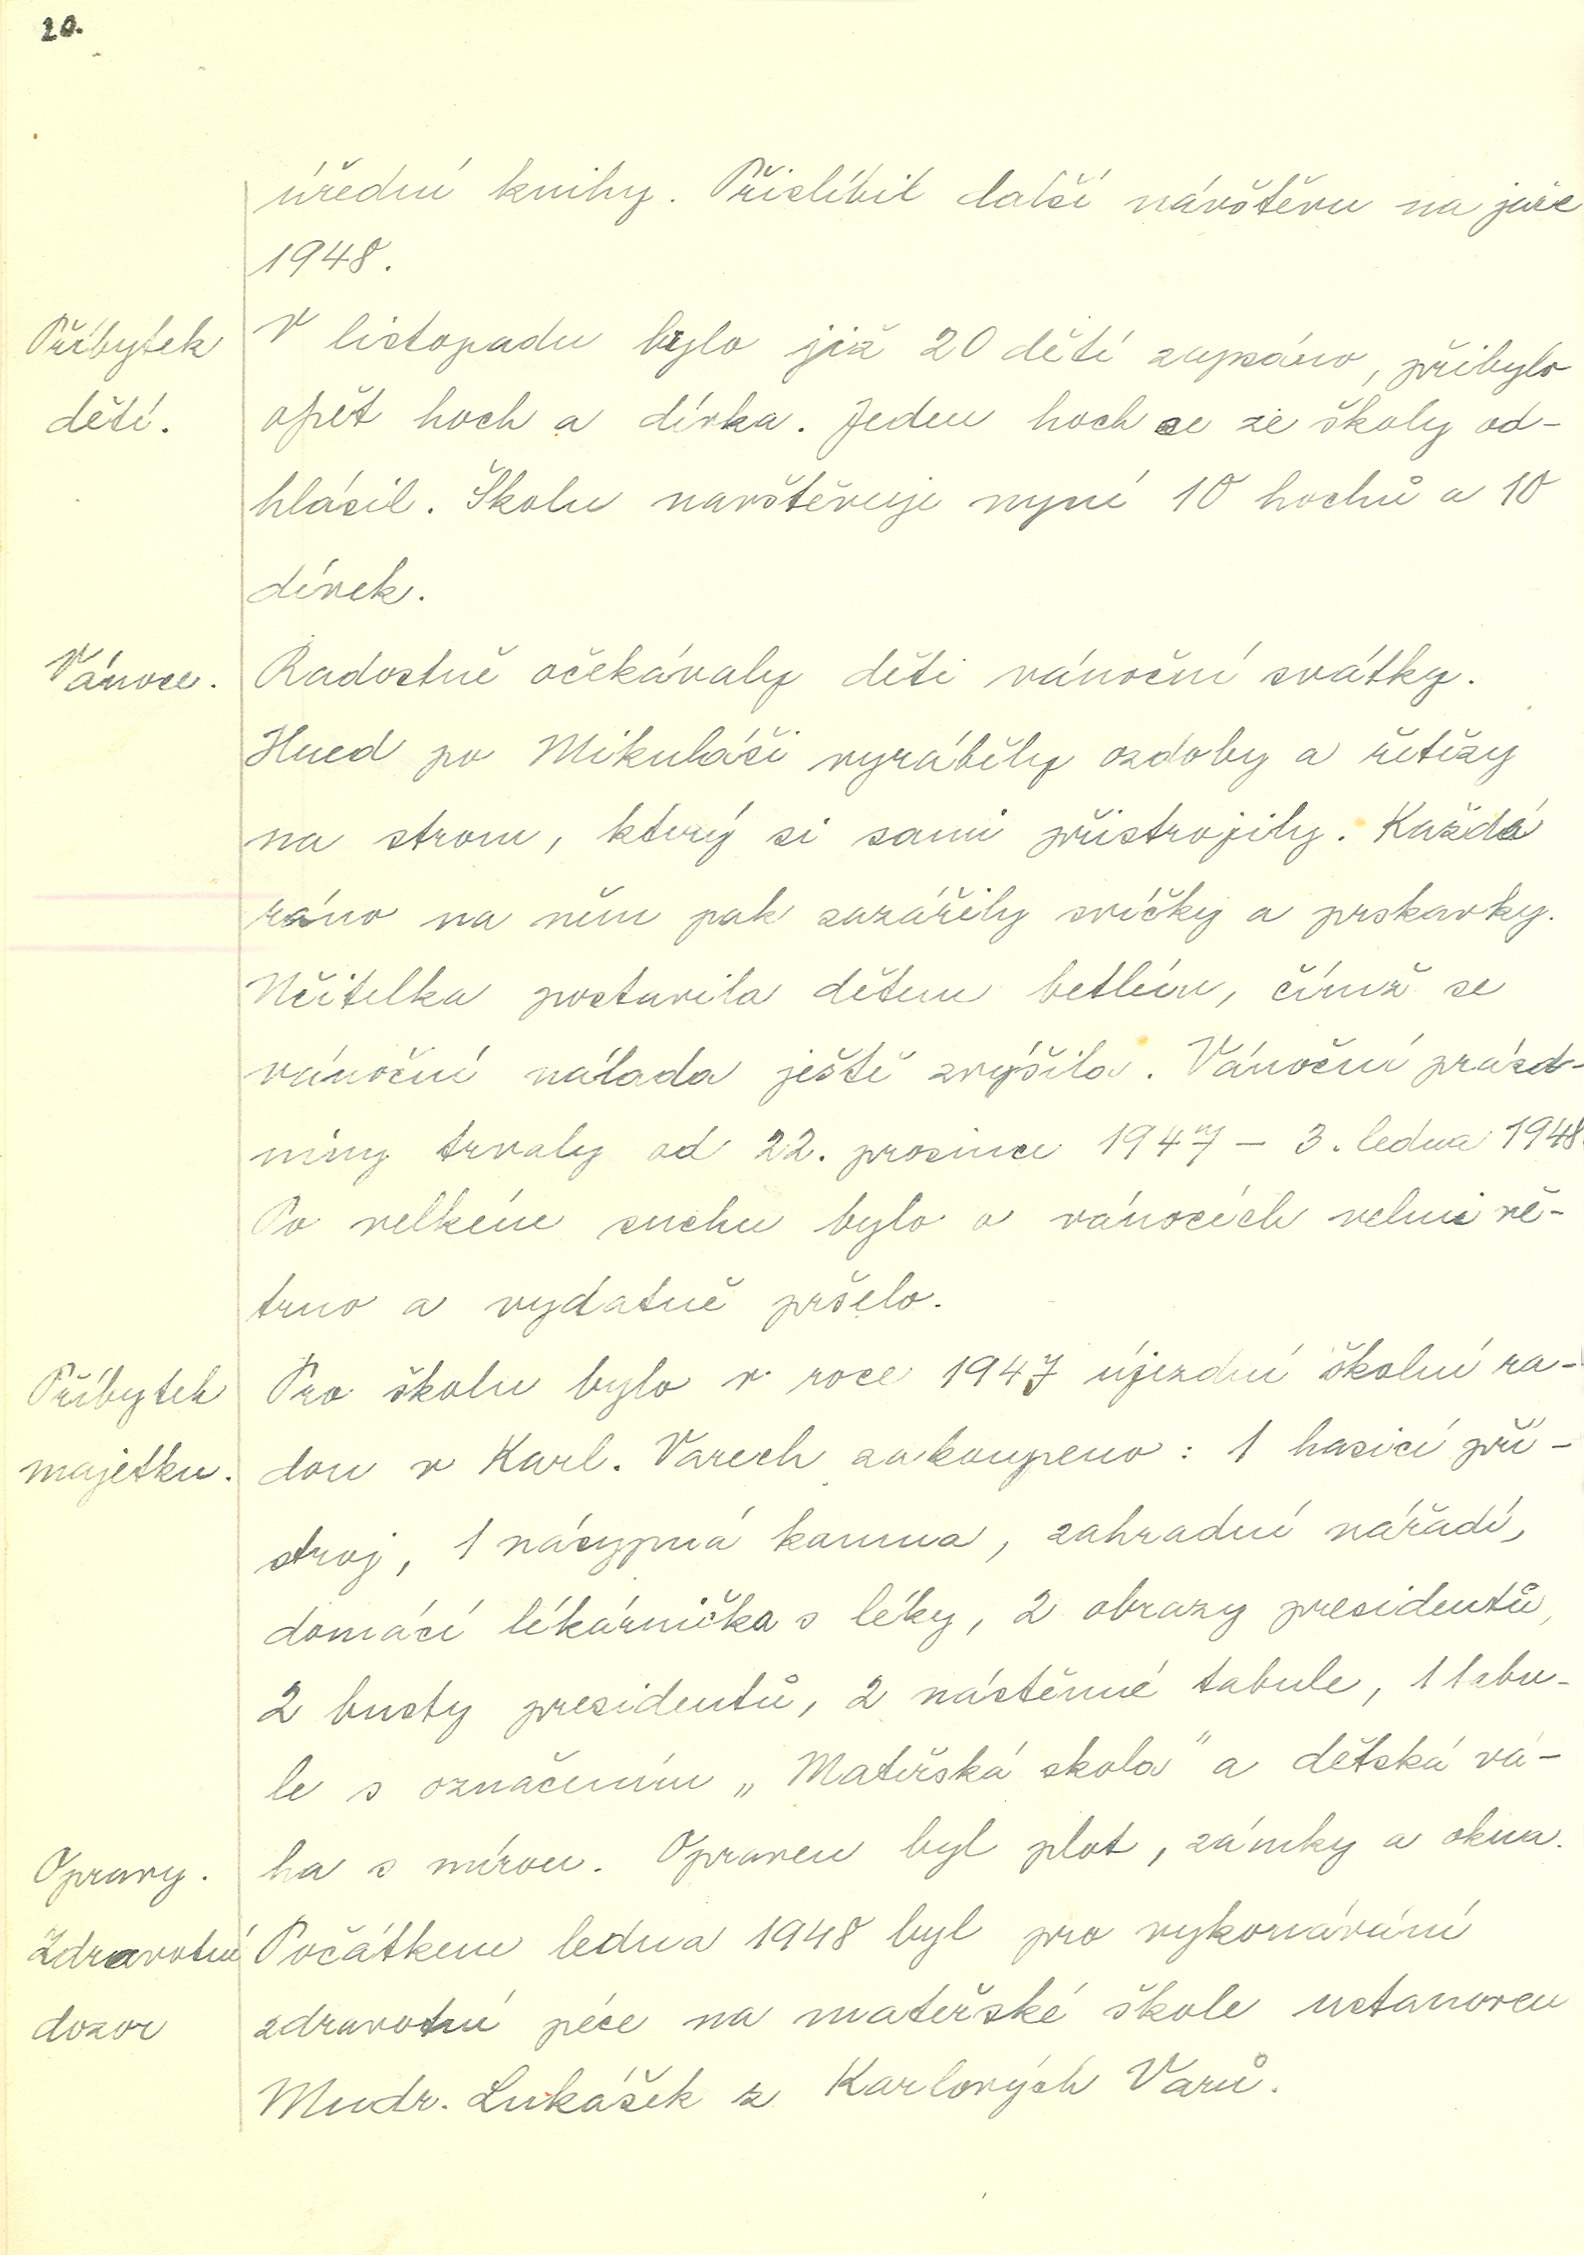 20.
úřední knihy. Přislíbil další návštěvu na jaře
1948.
Příbytek
dětí.
V listopadu bylo již 20 dětí zapsáno, přibylo
opět hoch a dívka. Jeden hoch se ze školy od-
hlásil. Školu navštěvuje nyní 10 hochů a 10
dívek.
Vánoce.
Radostně očekávaly děti vánoční svátky.
Hned po Mikuláši vyráběly ozdoby a řetězy
na strom, který si sami přistrojily. Každé
ráno na něm pak zazářily svíčky a prskavky.
Učitelka postavila dětem betlém, čímž se
vánoční nálada ještě zvýšila. Vánoční prázd-
niny trvaly od 22. prosince 1947 – 3. ledna 1948
Po velkém suchu bylo o vánocích velmi vě-
trno a vydatně pršelo.
Příbytek
majetku.
Pro školu bylo v roce 1947 újezdní školní ra-
dou v Karl. Varech zakoupeno: 1 hasicí pří-
stroj, 1 násypná kamna, zahradní nářadí,
domácí lékárnička s léky, 2 obrazy presidentů,
2 busty presidentů, 2 nástěnné tabule, 1 tabu-
le s označením „Mateřská skola" a dětská vá-
Opravy.
ha s mírou. Opraven byl plot, zámky a okna.
Zdravotní
dozor
Počátkem ledna 1948 byl pro vykonávání
zdravotní péče na mateřské škole ustanoven
Mudr. Lukášek z Karlových Varů.